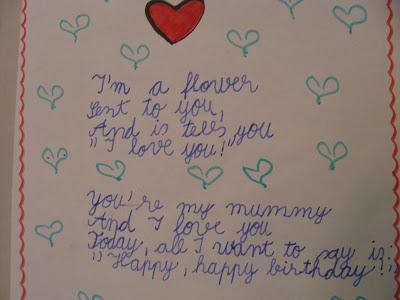 I'm a flower
Sent to you,
And is tells you
"I love you!"
You're my mummy
And I love you
Today, all I want to say is:
"Happy, happy birthday!"